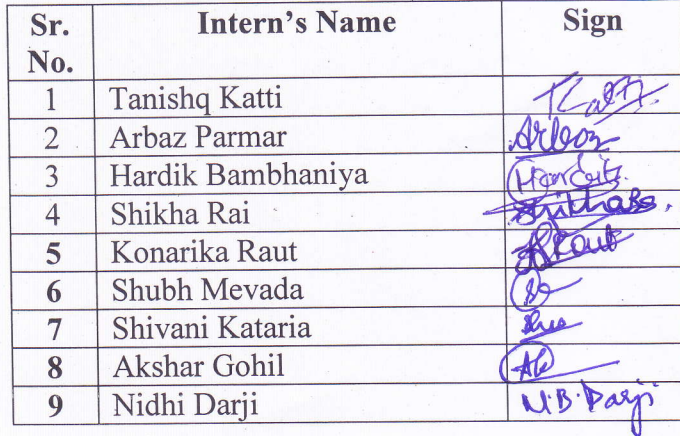 Sr. No. Intern's Name Sign
1 Tanishq Katti
2 Arbaz Parmar Arbaz
3 Hardik Bambhaniya
4 Shikha Rai
5 Konarika Raut
6 Shubh Mevada
7 Shivani Kataria
8 Akshar Gohil
9 Nidhi Darji N.B.Darji